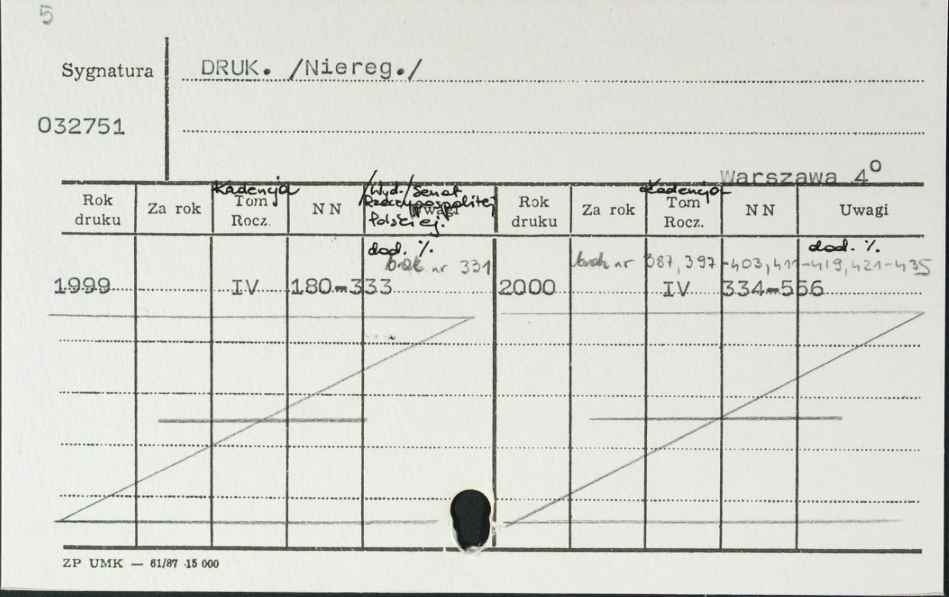 5
Sygnatura DRUK. /Niereg./
032751
Warszawa 4°
Kadencja /Wyd./Senat Kadencja
Rzeczypospolitej
Polskiej.
Rok druku Za rok Tom Rocz. NN Uwagi Rok druku Za rok Tom Rocz. NN Uwagi
dod. %. dod. %.
brak nr 331 brak nr 387, 397-403, 411-419, 421-435
1999 IV 180-333 2000 IV 334-556
ZP UMK — 61/87 15 000